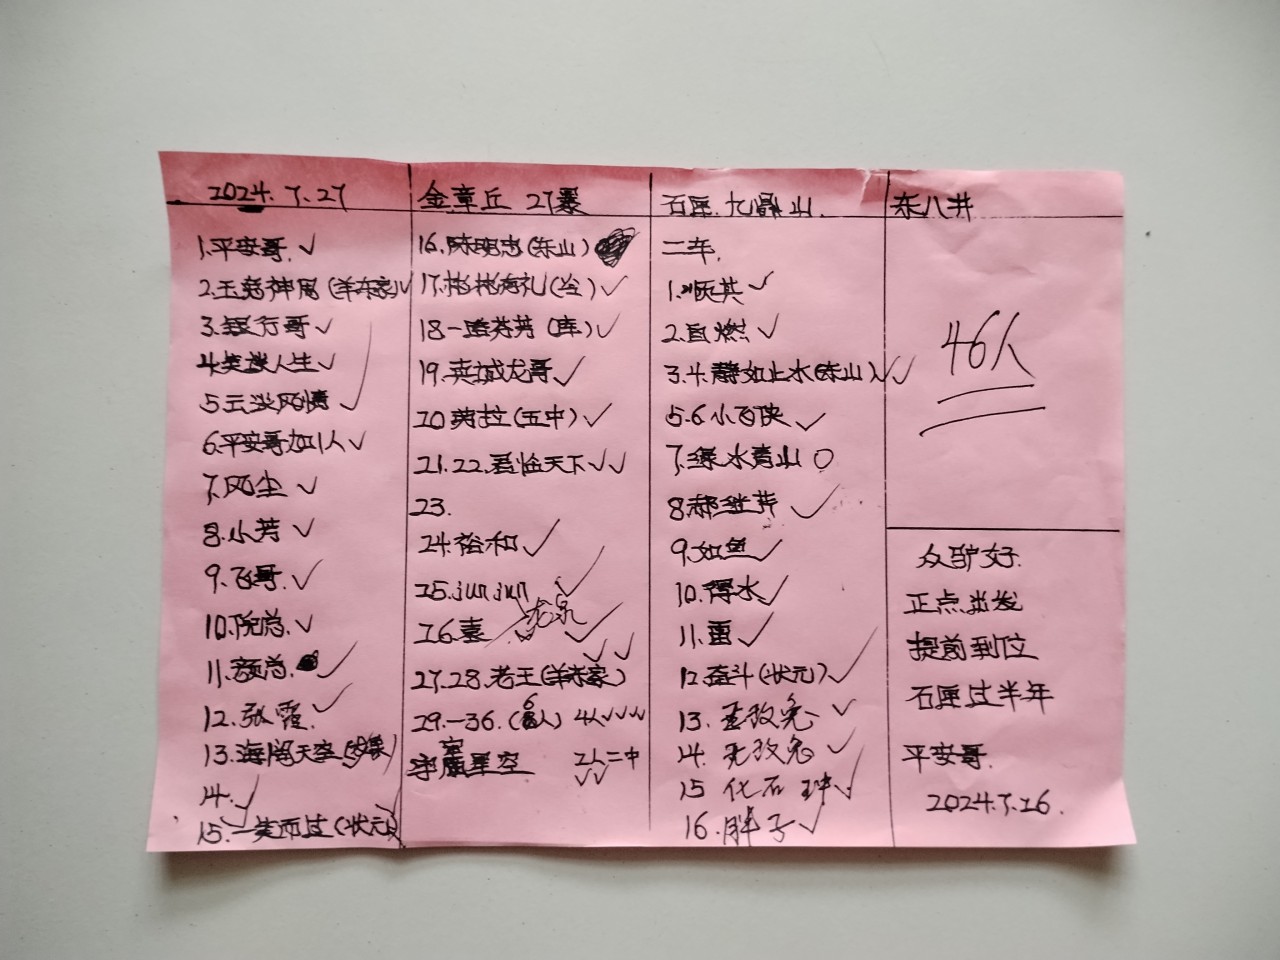 2024.7.27
1.平安哥.✓
2.玉菀神周(羊东家)✓
3.银行哥✓
4.笑谈人生✓
5.云淡风情✓
6.平安哥加1人✓
7.风尘✓
8.小芳✓
9.飞哥.✓
10.院总.✓
11.颜总.✓
12.张霞.✓
13.海阔天空
14.✓
15.一笑而过(状元)✓
金章丘 27
16.陈明忠(东山)
17.彬彬有礼(仝)✓
18一路芬芳(库)✓
19.英城龙哥✓
20 (五中)✓
21.22.君临天下✓✓
23.
24.裕和✓
25.junjun✓
龙泉
26.袁✓
✓✓
27.28.老王(羊东家)
29.-36.(6人) 4人✓✓✓
星空 2人二中
✓✓
石匣.九鼎山.
二车.
1.顺其✓
2.自燃✓
3.4.静如止水(东山)✓✓
5.6小飞侠✓
7.绿水青山○
8.郝继芹✓
9.如鱼✓
10.得水✓
11.雷✓
12.奋斗(状元)✓
13.玫兔✓
14.无玫兔✓
15 化石 ✓
16.胖子✓
东八井
46人
众驴好.
正点出发
提前到位
石匣过半年
平安哥.
2024.7.26.